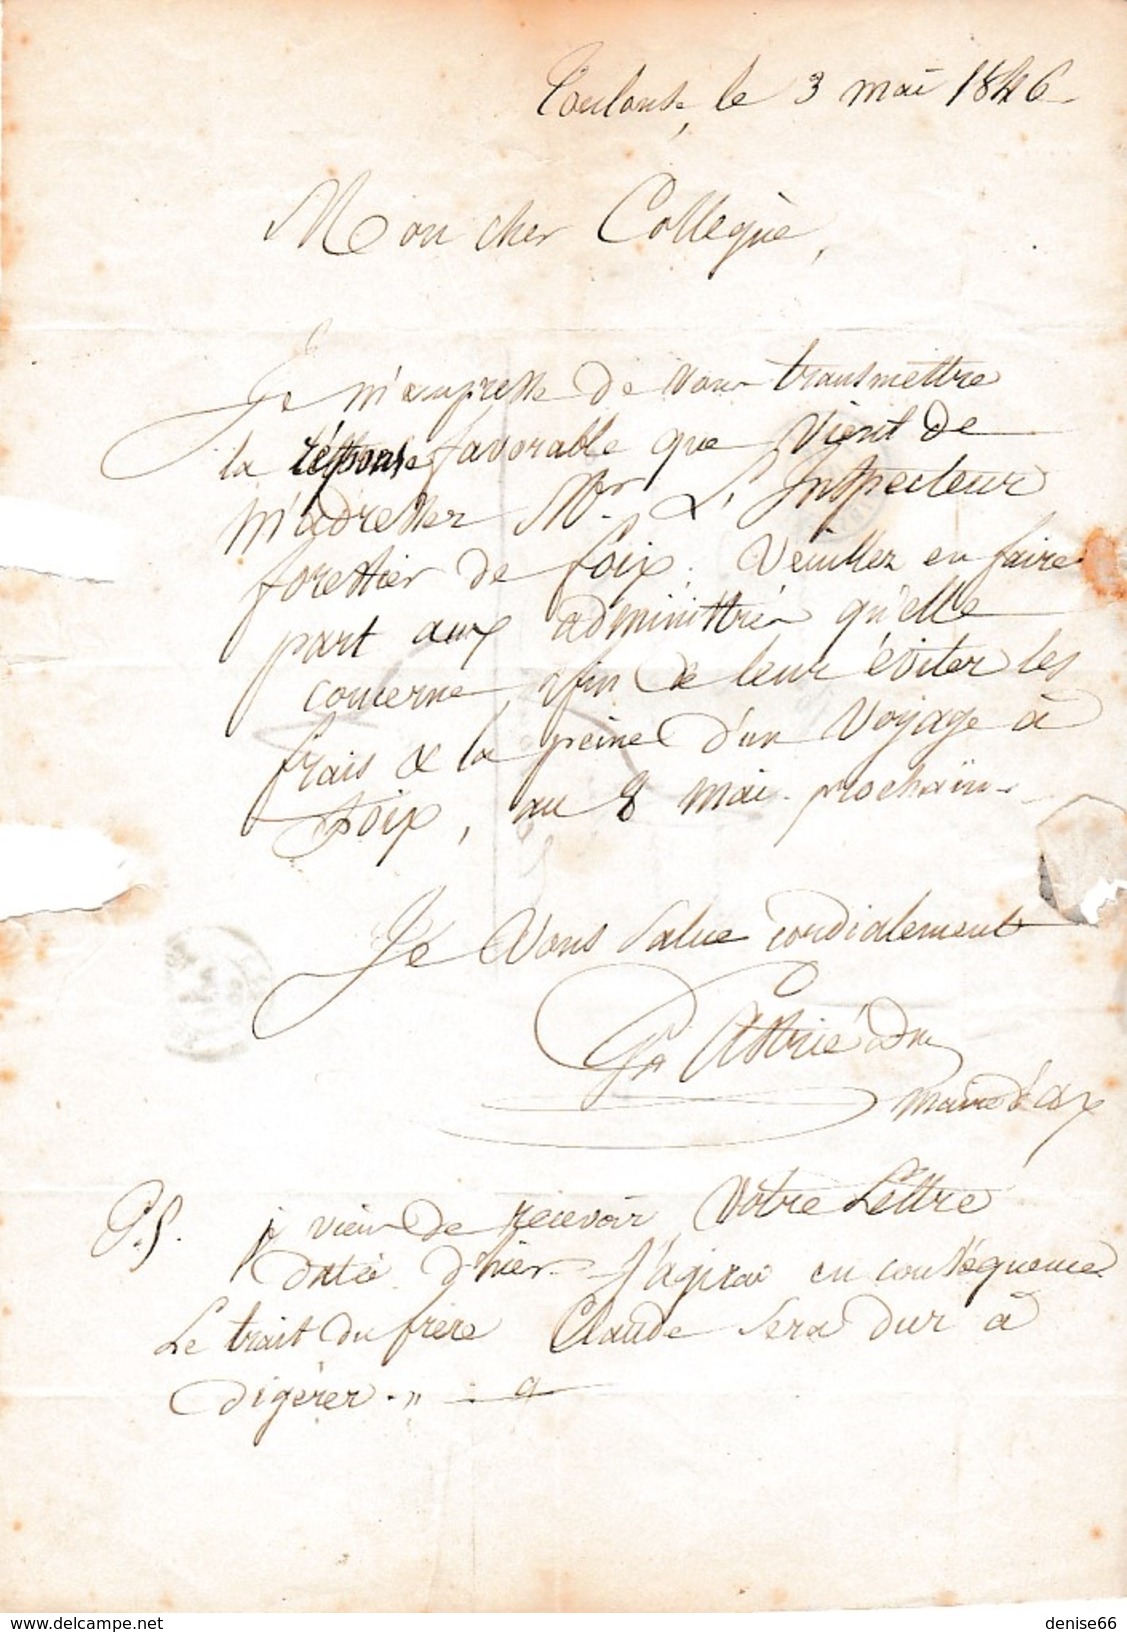 Toulouse, le 3 mai 1846
Mon cher Collegüe,
Je m'empresse de vous transmettre
la réponse favorable que vient de
m'adresser Mr. L'Inspecteur
forestier de foix. Veuillez en faire
part aux administrés qu'elle
concerne, afin de leur éviter les
frais & la peine d'un voyage à
Foix, au 8 mai prochain.
Je vous salue cordialement
Astrié
maire d'ax
P.S. je viens de recevoir votre Léttre
datée d'hier. J'agirai en conséquence
Le trait du frère Claude sera dur à
digérer.
delcampe.net
denise66